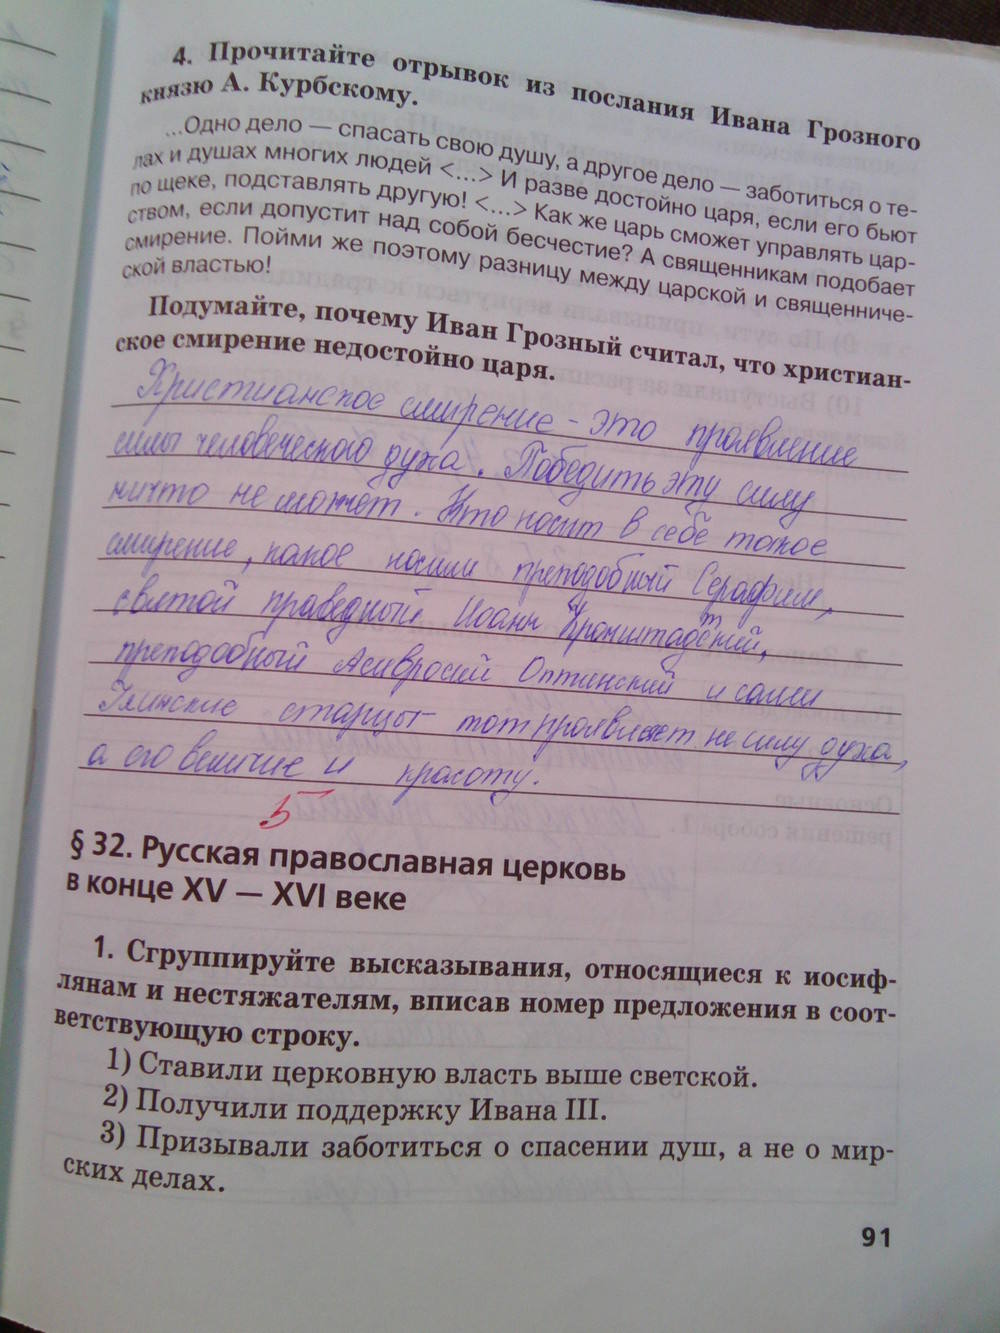 4. Прочитайте отрывок из послания Ивана Грозного
князю А. Курбскому.
...Одно дело — спасать свою душу, а другое дело — заботиться о те-
лах и душах многих людей <...> И разве достойно царя, если его бьют
по щеке, подставлять другую! <...> Как же царь сможет управлять цар-
ством, если допустит над собой бесчестие? А священникам подобает
смирение. Пойми же поэтому разницу между царской и священниче-
ской властью!
Подумайте, почему Иван Грозный считал, что христиан-
ское смирение недостойно царя.
Христианское смирение - это проявление
силы человеческого духа. Победить эту силу
ничто не может. Кто носит в себе такое
смирение, какое носили преподобный Серафим,
святой праведный Иоанн Кронштадтский,
преподобный Амвросий Оптинский и сами
Глинские старцы тот проявляет не силу духа,
а его величие и красоту.
5
§ 32. Русская православная церковь
в конце XV — XVI веке
1. Сгруппируйте высказывания, относящиеся к иосиф-
лянам и нестяжателям, вписав номер предложения в соот-
ветствующую строку.
1) Ставили церковную власть выше светской.
2) Получили поддержку Ивана III.
3) Призывали заботиться о спасении душ, а не о мир-
ских делах.
91